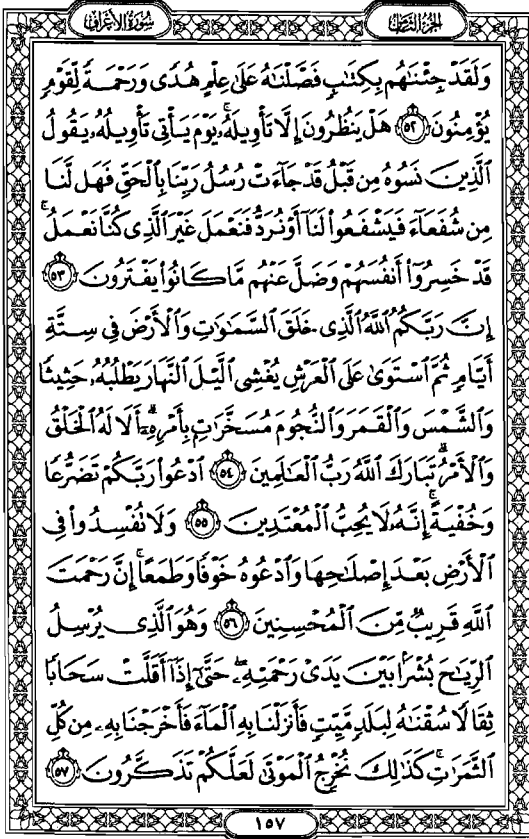 سُورَةُ الأَعْرَافِ
الجُزْءُ الثَّامِنُ
وَلَقَدْ جِئْنَٰهُم بِكِتَٰبٍ فَصَّلْنَٰهُ عَلَىٰ عِلْمٍ هُدًى وَرَحْمَةً لِّقَوْمٍ
يُؤْمِنُونَ ٥٢ هَلْ يَنظُرُونَ إِلَّا تَأْوِيلَهُۥ ۚ يَوْمَ يَأْتِى تَأْوِيلُهُۥ يَقُولُ
الَّذِينَ نَسُوهُ مِن قَبْلُ قَدْ جَآءَتْ رُسُلُ رَبِّنَا بِٱلْحَقِّ فَهَل لَّنَا
مِن شُفَعَآءَ فَيَشْفَعُوا۟ لَنَآ أَوْ نُرَدُّ فَنَعْمَلَ غَيْرَ ٱلَّذِى كُنَّا نَعْمَلُ ۚ
قَدْ خَسِرُوٓا۟ أَنفُسَهُمْ وَضَلَّ عَنْهُم مَّا كَانُوا۟ يَفْتَرُونَ ٥٣
إِنَّ رَبَّكُمُ ٱللَّهُ ٱلَّذِى خَلَقَ ٱلسَّمَٰوَٰتِ وَٱلْأَرْضَ فِى سِتَّةِ
أَيَّامٍ ثُمَّ ٱسْتَوَىٰ عَلَى ٱلْعَرْشِ يُغْشِى ٱلَّيْلَ ٱلنَّهَارَ يَطْلُبُهُۥ حَثِيثًا
وَٱلشَّمْسَ وَٱلْقَمَرَ وَٱلنُّجُومَ مُسَخَّرَٰتٍۭ بِأَمْرِهِۦٓ ۗ أَلَا لَهُ ٱلْخَلْقُ
وَٱلْأَمْرُ ۗ تَبَارَكَ ٱللَّهُ رَبُّ ٱلْعَٰلَمِينَ ٥٤ ٱدْعُوا۟ رَبَّكُمْ تَضَرُّعًا
وَخُفْيَةً ۚ إِنَّهُۥ لَا يُحِبُّ ٱلْمُعْتَدِينَ ٥٥ وَلَا تُفْسِدُوا۟ فِى
ٱلْأَرْضِ بَعْدَ إِصْلَٰحِهَا وَٱدْعُوهُ خَوْفًا وَطَمَعًا ۚ إِنَّ رَحْمَتَ
ٱللَّهِ قَرِيبٌ مِّنَ ٱلْمُحْسِنِينَ ٥٦ وَهُوَ ٱلَّذِى يُرْسِلُ
ٱلرِّيَٰحَ بُشْرًۢا بَيْنَ يَدَىْ رَحْمَتِهِۦ ۖ حَتَّىٰٓ إِذَآ أَقَلَّتْ سَحَابًا
ثِقَالًا سُقْنَٰهُ لِبَلَدٍ مَّيِّتٍ فَأَنزَلْنَا بِهِ ٱلْمَآءَ فَأَخْرَجْنَا بِهِۦ مِن كُلِّ
ٱلثَّمَرَٰتِ ۚ كَذَٰلِكَ نُخْرِجُ ٱلْمَوْتَىٰ لَعَلَّكُمْ تَذَكَّرُونَ ٥٧
١٥٧